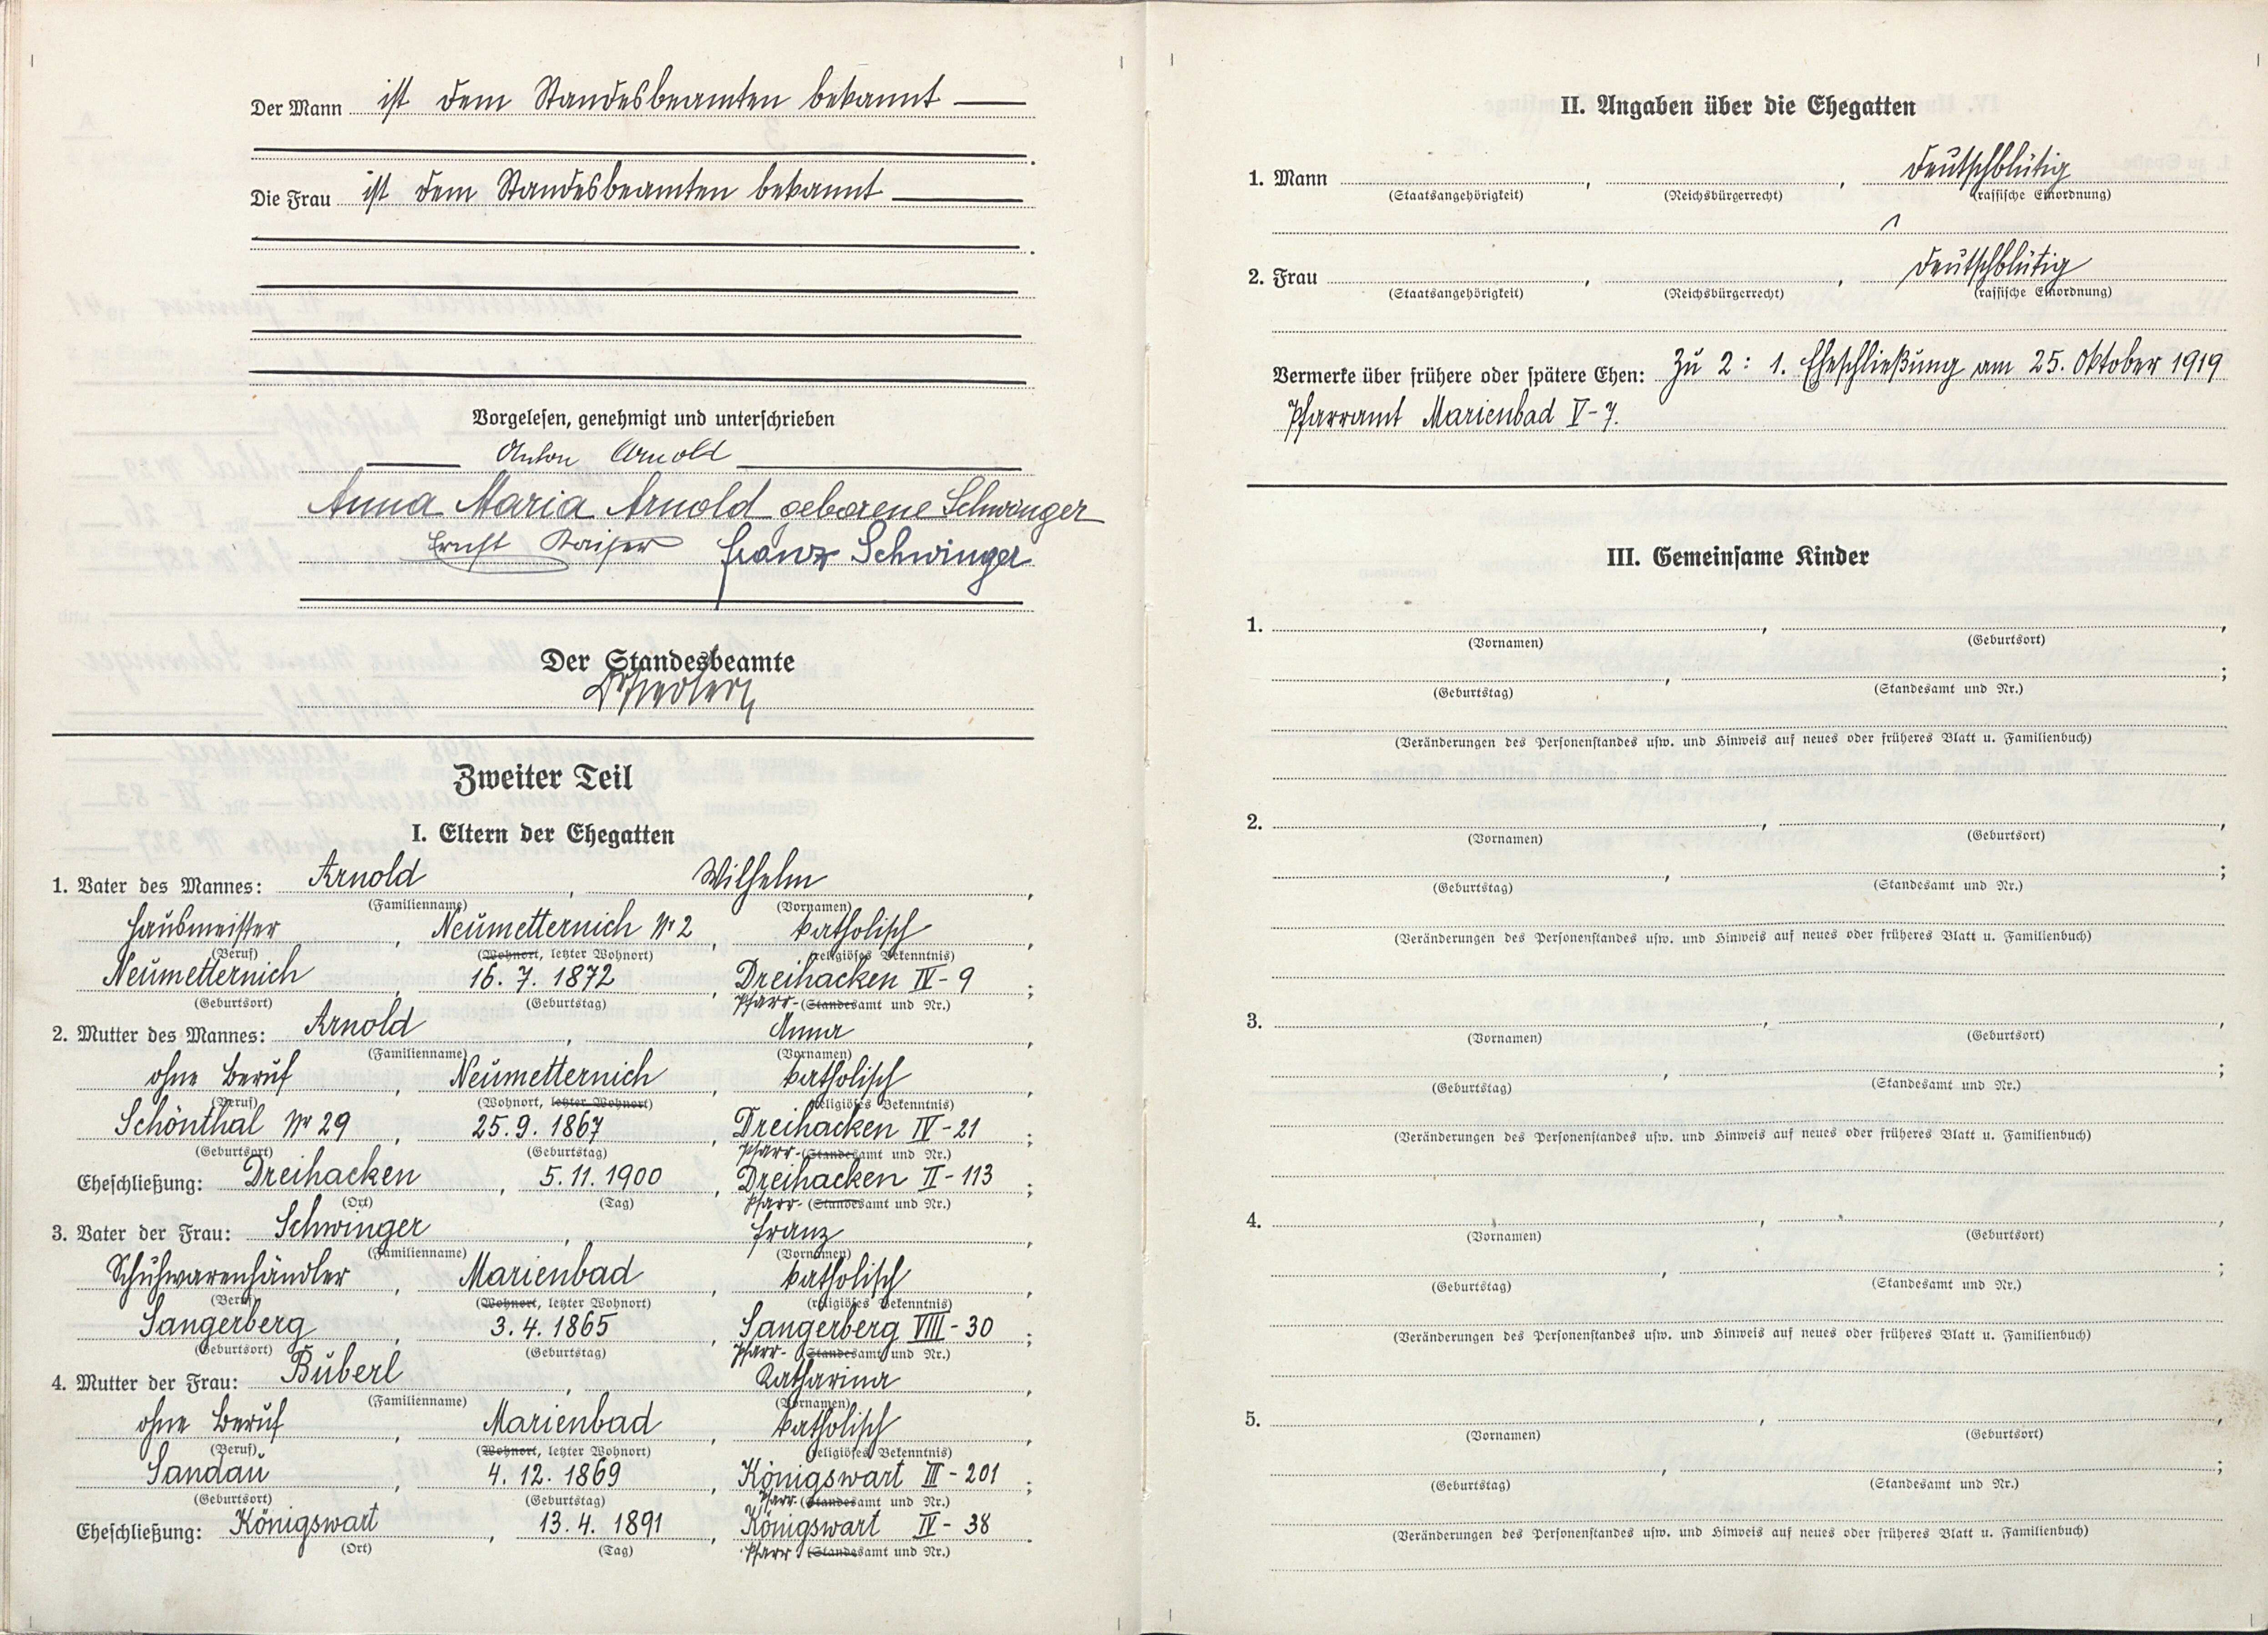 Der Mann ist dem Standesbeamten bekannt
Die Frau ist dem Standesbeamten bekannt
Vorgelesen, genehmigt und unterschrieben
Anton Arnold
Anna Maria Arnold geborene Schwinger
Ernst Kaiser Franz Schwinger
Der Standesbeamte
Zweiter Teil
I. Eltern der Ehegatten
1. Vater des Mannes: Arnold, Wilhelm,
(Familienname) (Vornamen)
Hausmeister, Neumetternich Nr 2, katholisch,
(Beruf) (Wohnort, letzter Wohnort) (religiöses Bekenntnis)
Neumetternich, 16. 7. 1872, Dreihacken IV - 9;
(Geburtsort) (Geburtstag) Pfarr- (Standesamt und Nr.)
2. Mutter des Mannes: Arnold, Anna,
(Familienname) (Vornamen)
ohne Beruf, Neumetternich, katholisch,
(Beruf) (Wohnort, letzter Wohnort) (religiöses Bekenntnis)
Schönthal Nr 29, 25. 9. 1867, Dreihacken IV - 21;
(Geburtsort) (Geburtstag) Pfarr- (Standesamt und Nr.)
Eheschließung: Dreihacken, 5. 11. 1900, Dreihacken II - 113;
(Ort) (Tag) Pfarr- (Standesamt und Nr.)
3. Vater der Frau: Schwinger, Franz,
(Familienname) (Vornamen)
Schuhwarenhändler, Marienbad, katholisch,
(Beruf) (Wohnort, letzter Wohnort) (religiöses Bekenntnis)
Sangerberg, 3. 4. 1865, Sangerberg VIII - 30;
(Geburtsort) (Geburtstag) Pfarr- (Standesamt und Nr.)
4. Mutter der Frau: Buberl, Katharina,
(Familienname) (Vornamen)
ohne Beruf, Marienbad, katholisch,
(Beruf) (Wohnort, letzter Wohnort) (religiöses Bekenntnis)
Sandau, 4. 12. 1869, Königswart III - 201;
(Geburtsort) (Geburtstag) Pfarr- (Standesamt und Nr.)
Eheschließung: Königswart, 13. 4. 1891, Königswart IV - 38.
(Ort) (Tag) Pfarr (Standesamt und Nr.)
II. Angaben über die Ehegatten
1. Mann , , deutschblütig
(Staatsangehörigkeit) (Reichsbürgerrecht) (rassische Einordnung)
2. Frau , , deutschblütig
(Staatsangehörigkeit) (Reichsbürgerrecht) (rassische Einordnung)
Vermerke über frühere oder spätere Ehen: Zu 2: 1. Eheschließung am 25. Oktober 1919
Pfarramt Marienbad V - 7.
III. Gemeinsame Kinder
1. , ,
(Vornamen) (Geburtsort)
, ;
(Geburtstag) (Standesamt und Nr.)
(Veränderungen des Personenstandes usw. und Hinweis auf neues oder früheres Blatt u. Familienbuch)
2. , ,
(Vornamen) (Geburtsort)
, ;
(Geburtstag) (Standesamt und Nr.)
(Veränderungen des Personenstandes usw. und Hinweis auf neues oder früheres Blatt u. Familienbuch)
3. , ,
(Vornamen) (Geburtsort)
, ;
(Geburtstag) (Standesamt und Nr.)
(Veränderungen des Personenstandes usw. und Hinweis auf neues oder früheres Blatt u. Familienbuch)
4. , ,
(Vornamen) (Geburtsort)
, ;
(Geburtstag) (Standesamt und Nr.)
(Veränderungen des Personenstandes usw. und Hinweis auf neues oder früheres Blatt u. Familienbuch)
5. , ,
(Vornamen) (Geburtsort)
, ;
(Geburtstag) (Standesamt und Nr.)
(Veränderungen des Personenstandes usw. und Hinweis auf neues oder früheres Blatt u. Familienbuch)